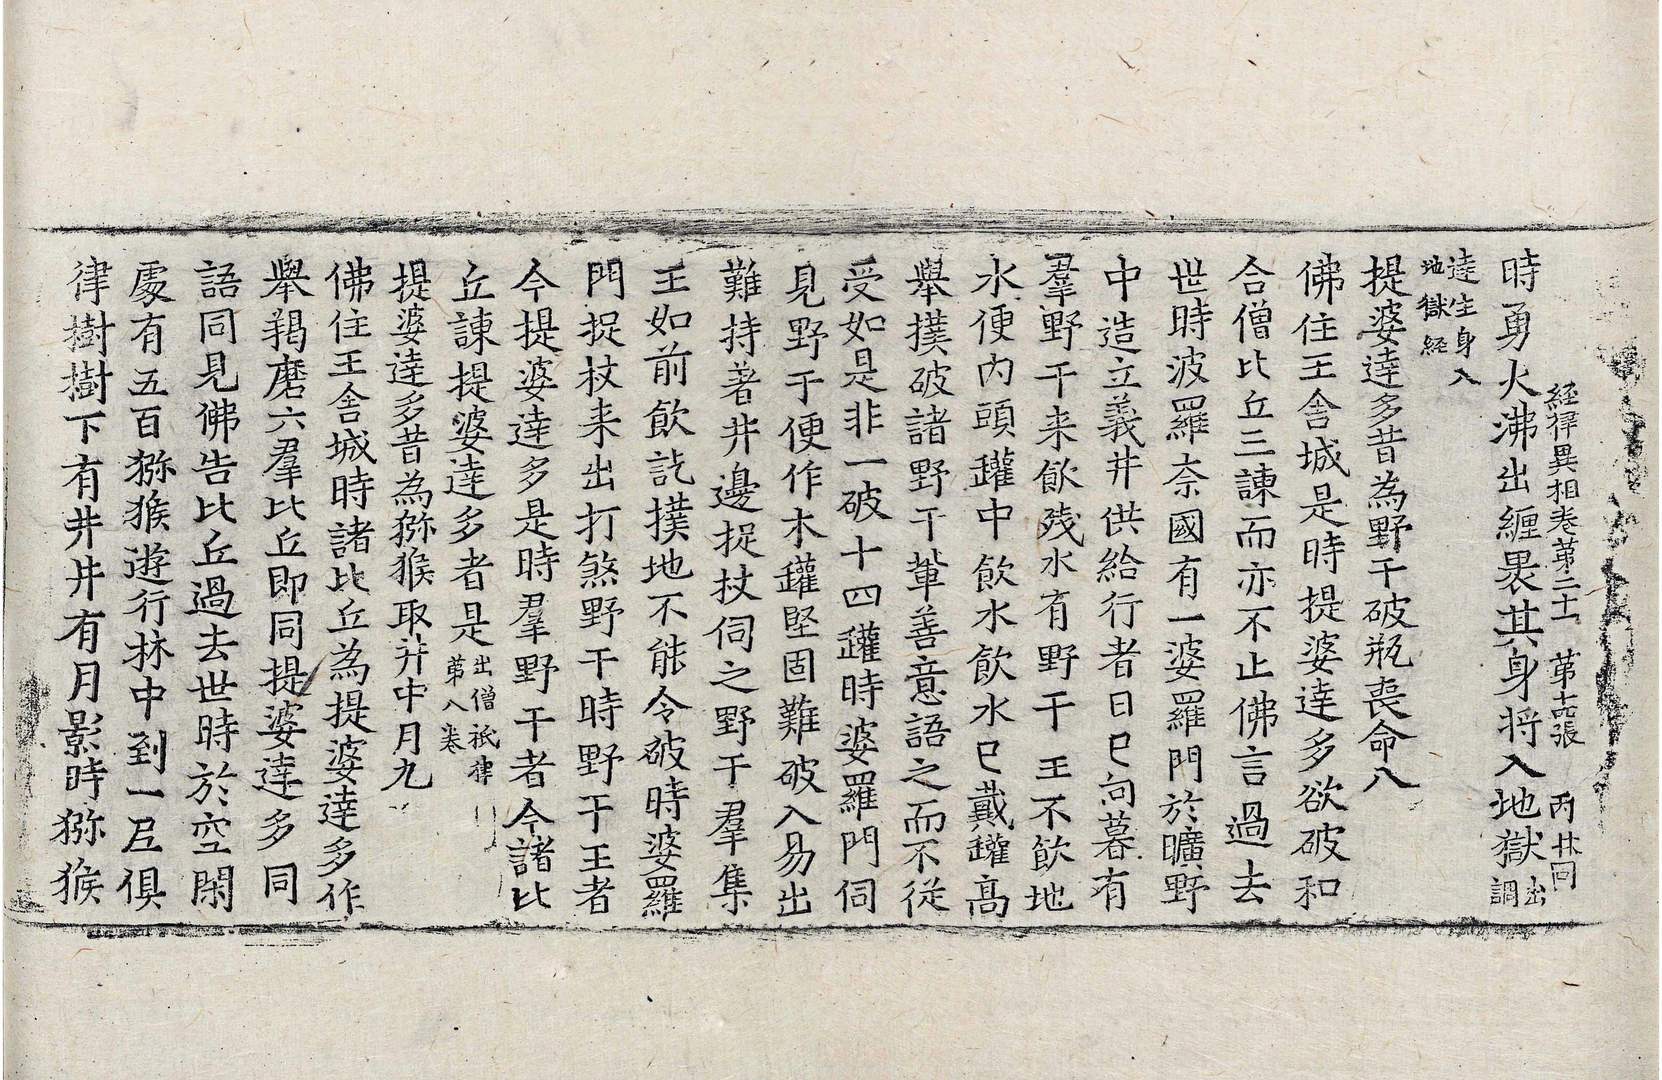 經律異相卷第二十一 第十四張 丙 井同
時勇火沸出纏裹其身将入地獄出調
達生身入
地獄經
提婆達多昔為野干破瓶喪命八
佛住王舍城是時提婆達多欲破和
合僧比丘三諫而亦不止佛言過去
世時波羅奈國有一婆羅門於曠野
中造立義井供給行者日巳向暮有
羣野干来飲殘水有野干王不飲地
水便内頭罐中飲水飲水巳戴罐高
舉撲破諸野干輩善意語之而不從
受如是非一破十四罐時婆羅門伺
見野干便作木罐堅固難破入易出
難持著井邊捉杖伺之野干羣集
王如前飲訖撲地不能令破時婆羅
門捉杖来出打煞野干時野干王者
今提婆達多是時羣野干者今諸比
丘諫提婆達多者是出僧祇律第八卷
提婆達多昔為猕猴取井中月九
佛住王舍城時諸比丘為提婆達多作
舉羯磨六羣比丘即同提婆達多同
語同見佛告比丘過去世時於空閑
處有五百猕猴遊行林中到一尼俱
律樹樹下有井井有月影時猕猴